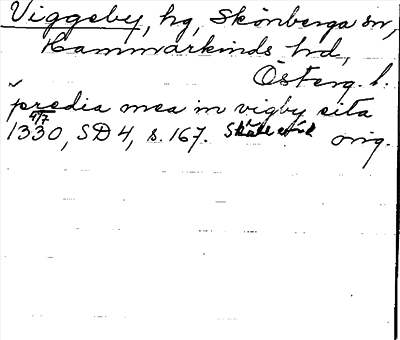 Viggeby, hg, Skönberga sn,
Hammarkinds hd,
Österg. l.
predia mea in vigby sita
4/7
1330, SD 4, s. 167. orig.